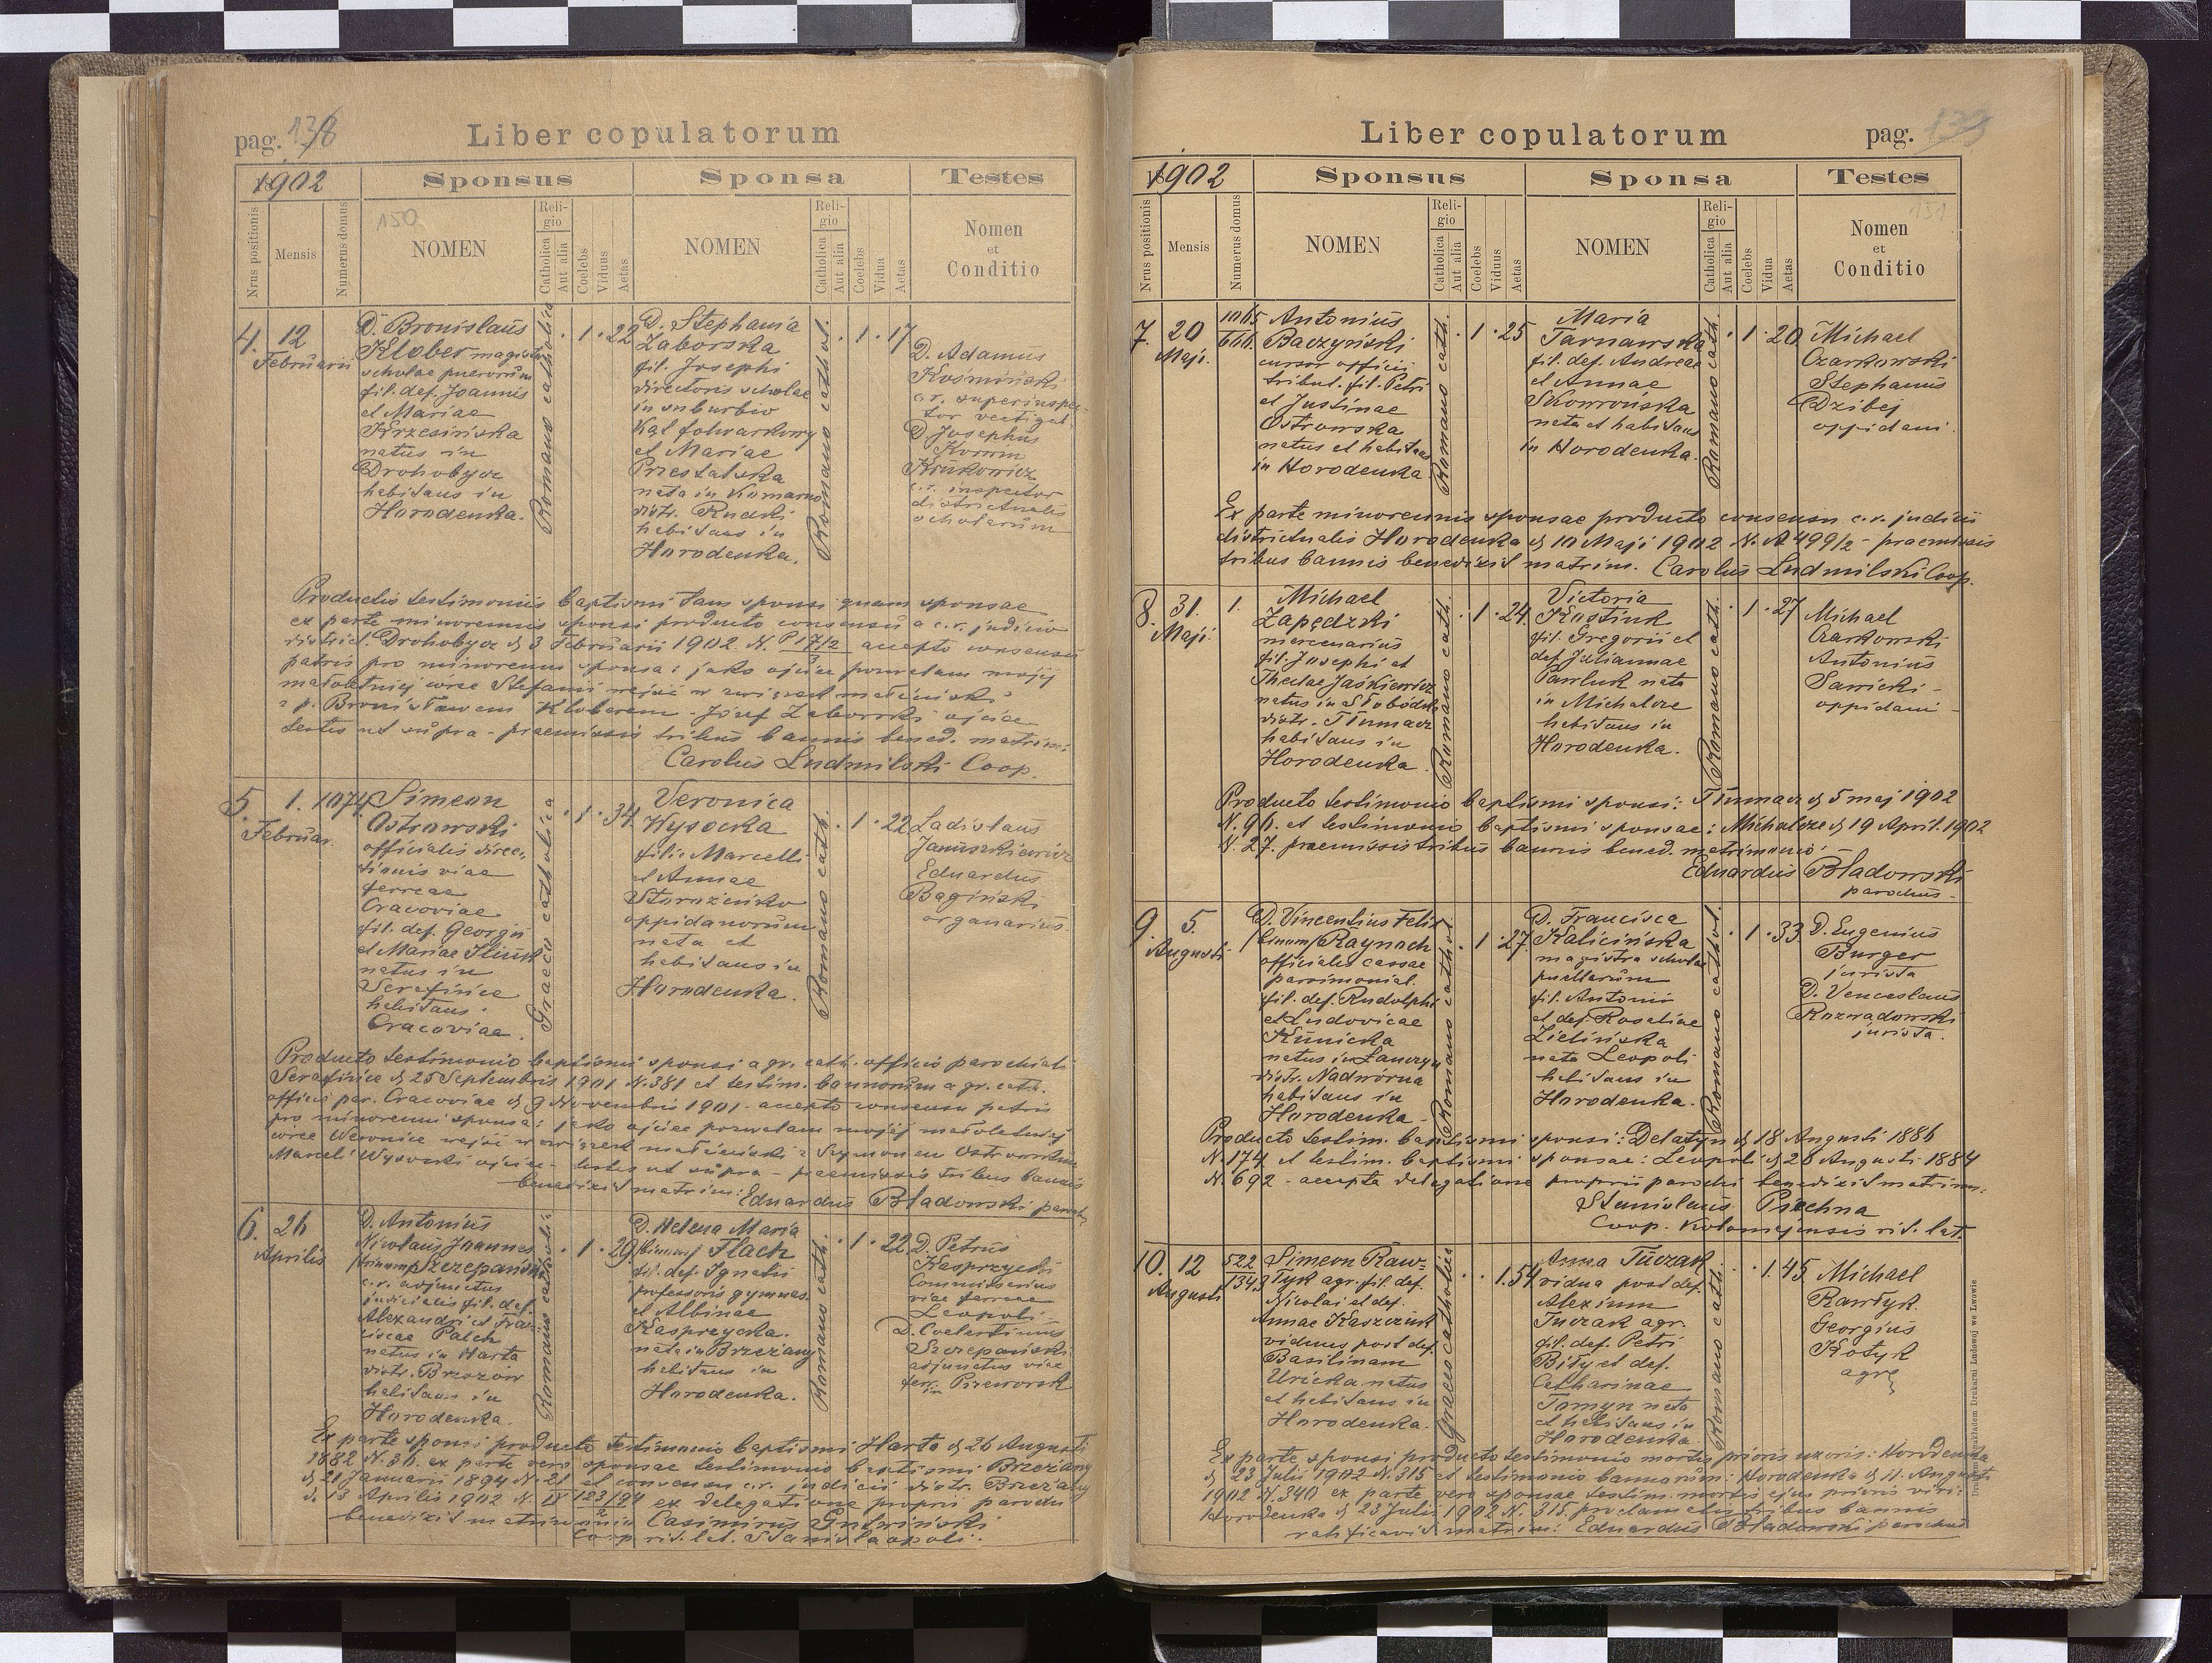 pag. 138
Liber copulatorum
1902
Sponsus
Sponsa
Testes
Nrus positionis
Mensis
Numerus domus
150
NOMEN
Religio
Catholica
Aut alia
Coelebs
Viduus
Aetas
NOMEN
Religio
Catholica
Aut alia
Coelebs
Vidua
Aetas
Nomen
et
Conditio
4. 12
Februarii
D. Bronislaus
Klober magister
scholae puerorum
fil. def. Joannis
et Mariae
Krzesińska
natus in
Drohobycz
habitans in
Horodenka.
Romano catholica
1 · 22
D. Stephania
Zaborska
fil. Josephi
directoris scholae
in suburbio
Kąt folwarkowy
et Mariae
Przestalska
nata in Komarno
distr. Rudki
habitans in
Horodenka.
Romano cathol.
1 · 17
D. Adamus
Kośmiński
c.r. superinspec-
tor vectigal.
D. Josephus
Korwin
Krukowicz
c.r. inspector
districtualis
scholarum
Productis testimoniis baptismi tam sponsi quam sponsae
ex parte minorennis sponsi producto consensu a c.r. judicio
district. Drohobycz d 3 Februarii 1902 N. P 17/2 accepto consensu
patris pro minorenni sponsa: jako ojciec pozwalam mojej
małoletniej córce Stefanii wejść w związek małżeński
z p. Bronisławem Kloberem - Józef Zaborski ojciec
testes ut supra - praemissis tribus bannis bened. matrim:
Carolus Ludmilski Coop.
5. 1. 1074
Februar.
Simeon
Ostrowski
officialis direc-
tionis viae
ferreae
Cracoviae
fil. def. Georgii
et Mariae Iliuk
natus in
Serafińce
habitans
Cracoviae.
Graeco catholica
1 · 34
Veronica
Wysocka
filia Marcelli
et Annae
Storożenko
oppidanorum
nata et
habitans in
Horodenka.
Romano cath.
1 · 22
Ladislaus
Januszkiewicz
Eduardus
Bagiński
organarius.
Producto testimonio baptismi sponsi a gr. cath. officio parochiali
Serafińce d 25 Septembris 1901 N. 381 et testim. bannorum a gr. cath.
officii par. Cracoviae d 9 Novembris 1901 - accepto consensu patris
pro minorenni sponsa: jako ojciec pozwalam mojej małoletniej
córce Weronice wejść w związek małżeński z Szymonem Ostrowskim
Marceli Wysocki ojciec - testes ut supra - praemissis tribus bannis
benedixit matrim: Eduardus Bładowski paroch.
6. 26
Aprilis
D. Antonius
Nicolaus Joannes
/trinum/ Szczepański
c.r. adjunctus
judicialis fil. def.
Alexandri et Fran-
ciscae Palch
natus in Harta
distr. Brzozów
habitans in
Horodenka.
Romano catholi.
1 · 29
D. Helena Maria
/binum/ Flach
fil. def. Ignatii
professoris gymnas.
et Albinae
Kasprzycka.
nata in Brzeżany
habitans in
Horodenka.
Romano cath.
1 · 22
D. Petrus
Kasprzycki
Commissarius
viae ferreae
Leopoli -
D. Coelestinus
Szczepański
adjunctus viae
ferr. in Przeworsk
Ex parte sponsi producto testimonio baptismi Harta d 26 Augusti
1882 N. 36. ex parte vero sponsae testimonio baptismi Brzeżany
d 21 Januarii 1894 N. 21 et consensu c.r. judicii distr. Brzeżany
d. 13 Aprilis 1902 N. IV 123/94 ex delegatione proprii parochi
benedixit matrimonium Casimirus Gutwiński
Coop. rit. lat. Stanislaopoli.
Liber copulatorum
pag. 139
1902
Sponsus
Sponsa
Testes
151
Nrus positionis
Mensis
Numerus domus
NOMEN
Religio
Catholica
Aut alia
Coelebs
Viduus
Aetas
NOMEN
Religio
Catholica
Aut alia
Coelebs
Vidua
Aetas
Nomen
et
Conditio
7. 20 1065
Maji. 666.
Antonius
Baczyński
cursor officii
tribut. fil. Petri
et Justinae
Ostrowska
natus et habitans
in Horodenka.
Romano cath.
1 · 25
Maria
Tarnawska
fil. def. Andreae
et Annae
Skowrońska
nata et habitans
in Horodenka.
Romano cath.
1 · 20
Michael
Czarkowski
Stephanus
Dzibej
oppidani.
Ex parte minorennis sponsae producto consensu c.r. judicii
districtualis Horodenka d 10 Maji 1902 N. A 499/2 - praemissis
tribus bannis benedixit matrim. Carolus Ludmilski Coop.
8. 31. 1.
Maji.
Michael
Zapędzki
mercenarius
fil. Josephi et
Theclae Jaśkiewicz
natus in Słobódka
distr. Tłumacz
habitans in
Horodenka.
Romano cath.
1 · 24
Victoria
Kostiuk
fil. Gregorii et
def. Juliannae
Pawluk nata
in Michalcze
habitans in
Horodenka.
Romano cath.
1 · 27
Michael
Czarkowski
Antonius
Sawicki -
oppidani
Producto testimonio baptismi sponsi: Tłumacz d 5 maj 1902
N. 96. et testimonio baptismi sponsae: Michalcze d 19 April. 1902
N. 27. praemissis tribus bannis bened. matrimonio:
Eduardus Bładowski
parochus.
9. 5.
Augusti
D. Vincentius Felix
/binum/ Raynoch
officialis cassae
parsimonial.
fil. def. Rudolphi
et Ludovicae
Kunicka
natus in Łanczyn
distr. Nadwórna
habitans in
Horodenka.
Romano cathol.
1 · 27
D. Francisca
Kalicińska
magistra scholae
puellarum
fil. Antonii
et def. Rosaliae
Zielińska
nata Leopoli
habitans in
Horodenka.
Romano cathol.
1 · 33
D. Eugenius
Burger
jurista
D. Venceslaus
Rozwadowski
jurista.
Producto testim. baptismi sponsi: Delatyn d 18 Augusti 1886
N. 174 et testim. baptismi sponsae: Leopoli d 28 Augusti 1884
N. 692 - accepta delegatione proprii parochi benedixit matrim:
Stanislaus Piechna
Coop. Kołomyjensis rit. lat.
10. 12 522
Augusti 1343
Simeon Raw-
tyk agr. fil. def.
Nicolai et def.
Annae Kaszczuk
viduus post def.
Basilinam
Uricka natus
et habitans in
Horodenka.
Graeco catholica
1. 54
Anna Tuczak
vidua post def.
Alexium
Tuczak agr.
fil. def. Petri
Biły et def.
Catharinae
Tomyn nata
et habitans in
Horodenka.
Romano cath.
1. 45
Michael
Rawtyk
Georgius
Kotyk
agr.
Ex parte sponsi producto testimonio mortis prioris uxoris: Horodenka
d 23 Julii 1902 N. 315 et testimonio bannorum: Horodenka d 11. Augusti
1902 N. 340 ex parte vero sponsae testim. mortis ejus prioris viri:
Horodenka d 23 Julii 1902 N. 315. proclamatis tribus bannis
ratificavit matrim: Eduardus Bładowski parochus
Drukiem i nakładem Drukarni Ludowej we Lwowie